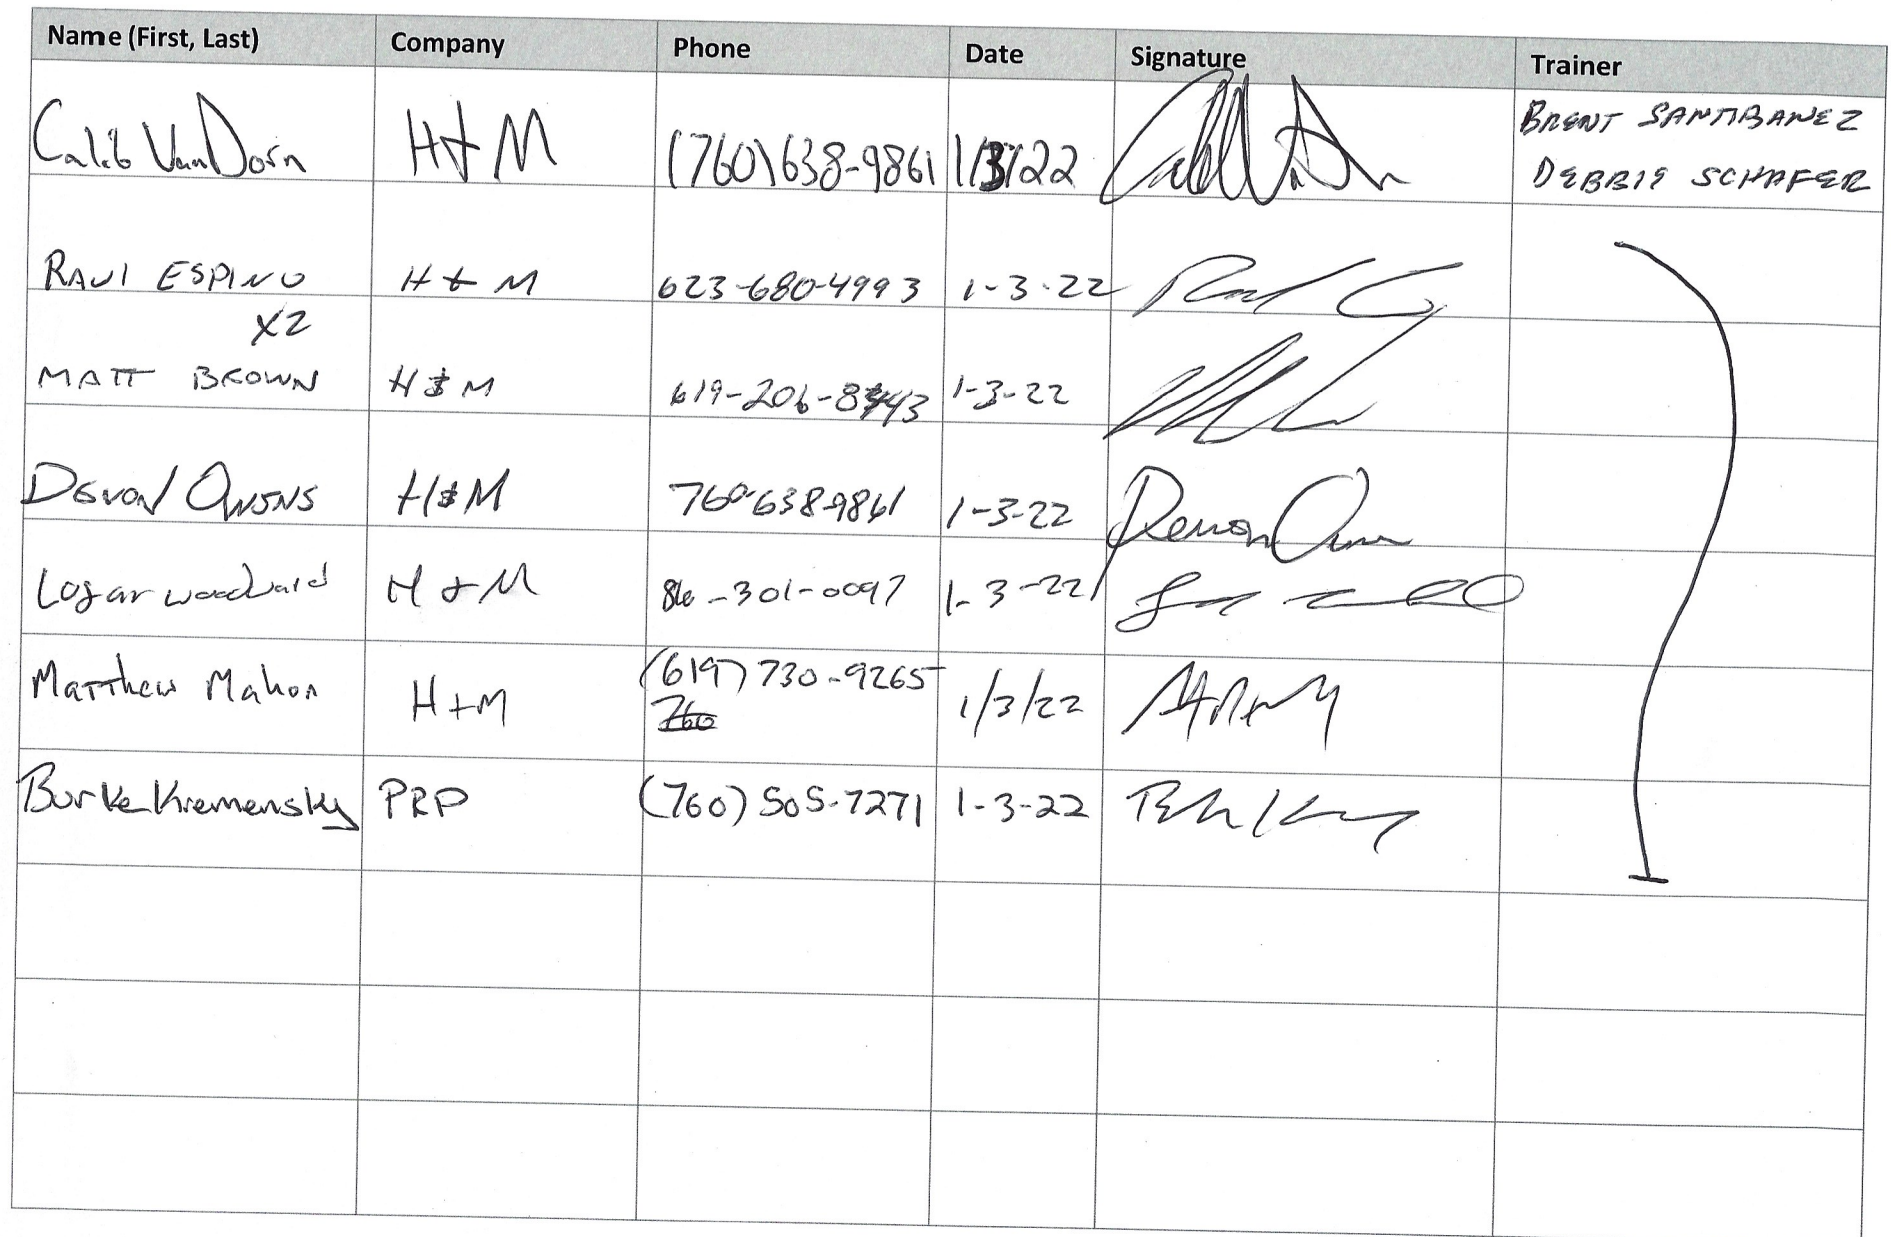 Name (First, Last) Company Phone Date Signature Trainer
Calib VanDorn H+M (760)638-9861 1/3/22 BRENT SANTIBANEZ
DEBBIE SCHAFER
RAUL ESPINO H+M 623-680-4993 1-3-22
X2
MATT BROWN H&M 619-206-8443 1-3-22
DEVON OWENS H&M 760-638-9861 1-3-22 Devon Owens
Logan woodward H+M 816-301-0097 1-3-22
Matthew Mahon H+M (619)730-9265 1/3/22
760
Burke Kremensky PRP (760)505-7271 1-3-22